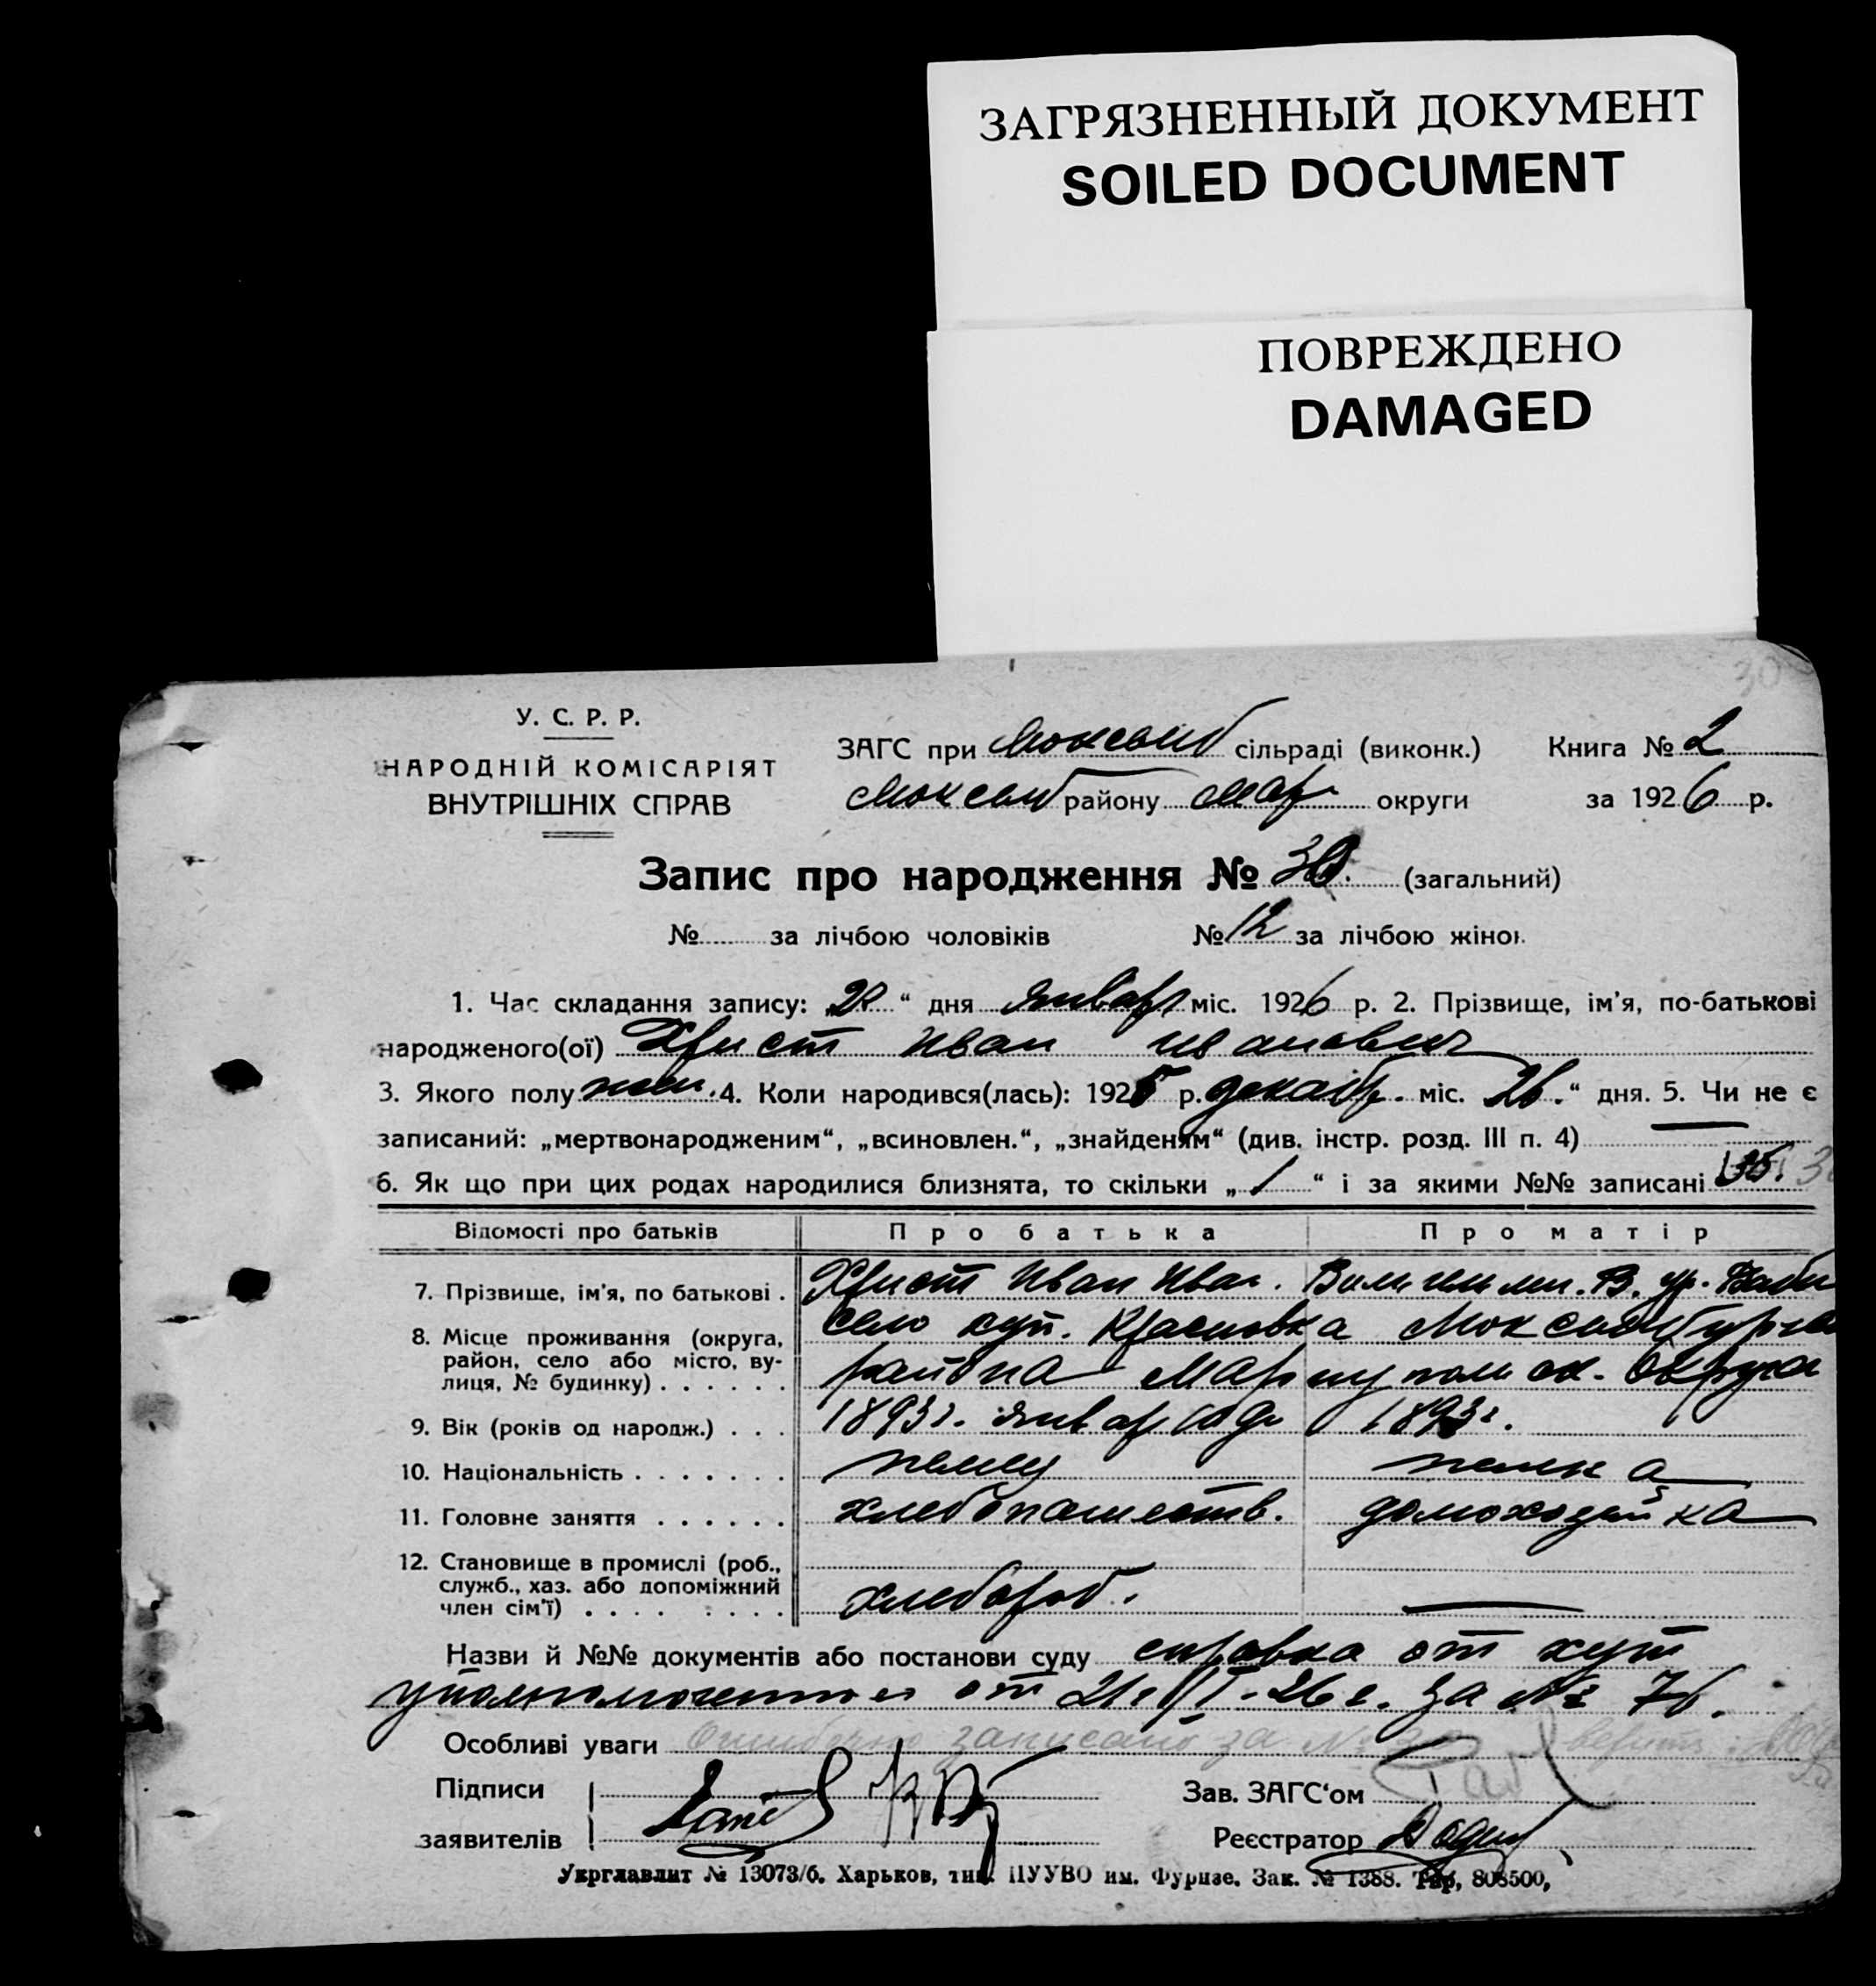 ЗАГРЯЗНЕННЫЙ ДОКУМЕНТ
SOILED DOCUMENT
ПОВРЕЖДЕНО
DAMAGED
30
У. С. Р. Р.
НАРОДНІЙ КОМІСАРІЯТ
ВНУТРІШНІХ СПРАВ
ЗАГС при сільраді (виконк.) Книга № 2
району Мар округи за 1926 р.
Запис про народження № 30. (загальний)
№ за лічбою чоловіків № 12 за лічбою жінок
1. Час складання запису: „ “ дня января міс. 1926 р. 2. Прізвище, ім'я, по-батькові
народженого(ої) Христ Иван Иванович
3. Якого полу 4. Коли народився(лась): 1925 р. декабр. міс. 26. “ дня. 5. Чи не є
записаний: „мертвонародженим“, „всиновлен.“, „знайденям“ (див. інстр. розд. III п. 4) —
6. Як що при цих родах народилися близнята, то скільки „ 1 “ і за якими №№ записані
Відомості про батьків Про батька Про матір
7. Прізвище, ім'я, по батькові . Христ Иван Иван.
8. Місце проживання (округа, район, село або місто, вулиця, № будинку) . . . . . . село хут. Красновка
района Мариупольск. Округа
9. Вік (років од народж.) . . . 1893г. январ 1893г.
10. Національність . . . . . . . немец немка
11. Головне заняття . . . . . . хлебопашеств. домохозяйка
12. Становище в промислі (роб., служб., хаз. або допоміжний член сім'ї) . . . . . . . . хлебороб. —
Назви й №№ документів або постанови суду справка от хут
уполномоченного от 21/I-26г. за № 76.
Особливі уваги Ошибочно записано за №
Підписи
заявителів
Зав. ЗАГС‘ом
Реєстратор
Укрглавлит № 13073/б. Харьков, тип. ПУУВО им. Фрунзе. Зак. № 1388. Тир, 808500,